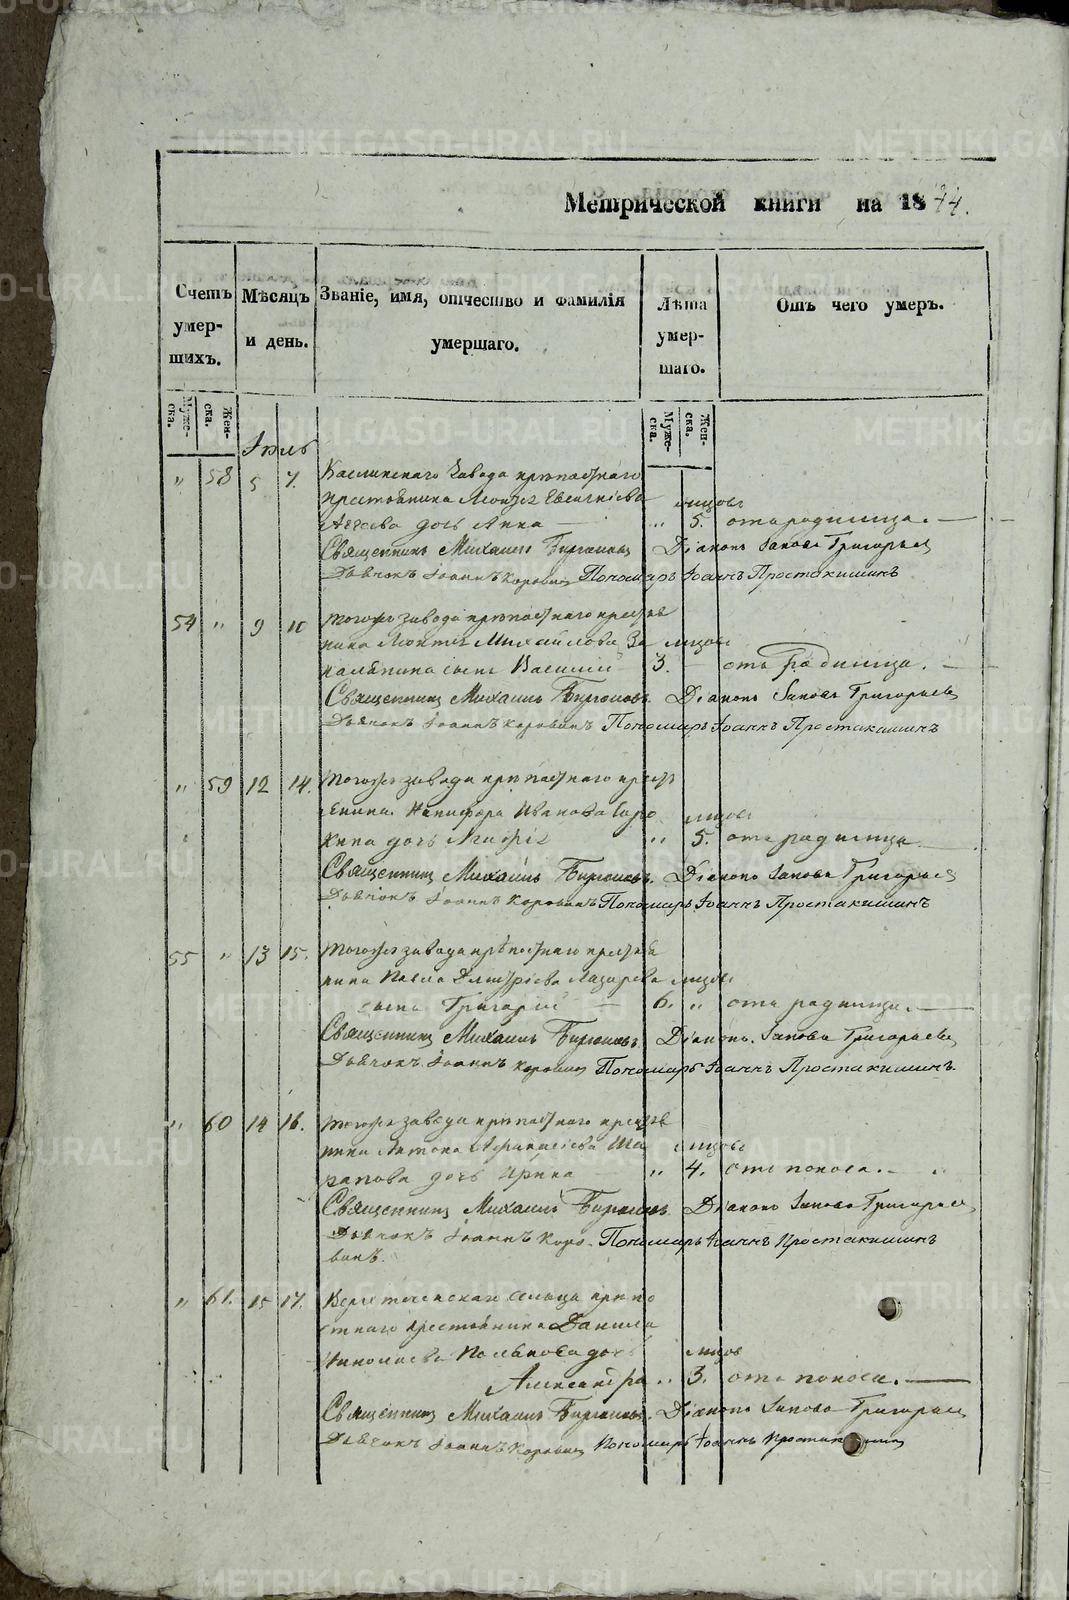 Метрической книги на 1844.
Счетъ умер- шихъ.
Мѣсяцъ и день.
Званіе, имя, отчество и фамилія умершаго.
Лѣта умер- шаго.
Отъ чего умеръ.
Муже- ска.
Жен- ска.
Муже- ска.
Жен- ска.
Іюль
" 58 5 7. Каслинскаго завода крѣпостнаго
крестьянина
дочь Анна мѣсяцовъ " 5. отъ родимца.
Священникъ Михаилъ Бирюковъ Діаконъ Іаковъ Григорьевъ
Дьячокъ Іоаннъ Коровинъ Пономарь Іоаннъ Простакишинъ
54 " 9 10 тогожъ завода крѣпостнаго крестья
нина Михайлова За мѣсяцовъ
сынъ Василій 3. отъ Родимца.
Священникъ Михаилъ Бирюковъ. Діаконъ Іаковъ Григорьевъ
Дьячокъ Іоаннъ Коровинъ Пономарь Іоаннъ Простакишинъ
" 59 12 14. тогожъ завода крѣпостнаго кресть
янина Никифора Иванова мѣсяцовъ
дочь " 5. отъ родимца.
Священникъ Михаилъ Бирюковъ. Діаконъ Іаковъ Григорьевъ
Дьячокъ Іоаннъ Коровинъ Пономарь Іоаннъ Простакишинъ
55 " 13 15. тогожъ завода крѣпостнаго крестья
нина Павла Дмитріева Лазарева мѣсяцовъ
сынъ Григорій 6. " отъ родимца.
Священникъ Михаилъ Бирюковъ. Діаконъ Іаковъ Григорьевъ
Дьячокъ Іоаннъ Коровинъ Пономарь Іоаннъ Простакишинъ.
" 60 14 16. тогожъ завода крѣпостнаго крестья
нина Антона Афанасіева Ша мѣсяцовъ
рапова дочь Ирина " 4. отъ поноса.
Священникъ Михаилъ Бирюковъ Діаконъ Іаковъ Григорьевъ
Дьячокъ Іоаннъ Коро- Пономарь Іоаннъ Простакишинъ
винъ.
" 61. 15 17. сельца крѣпо
стнаго крестьянина Данила
Николаева дочь мѣсяцовъ
Александра " 3. отъ поноса.
Священникъ Михаилъ Бирюковъ. Діаконъ Іаковъ Григорьевъ
Дьячокъ Іоаннъ Коровинъ Пономарь Іоаннъ
METRIKI.GASO-URAL.RU